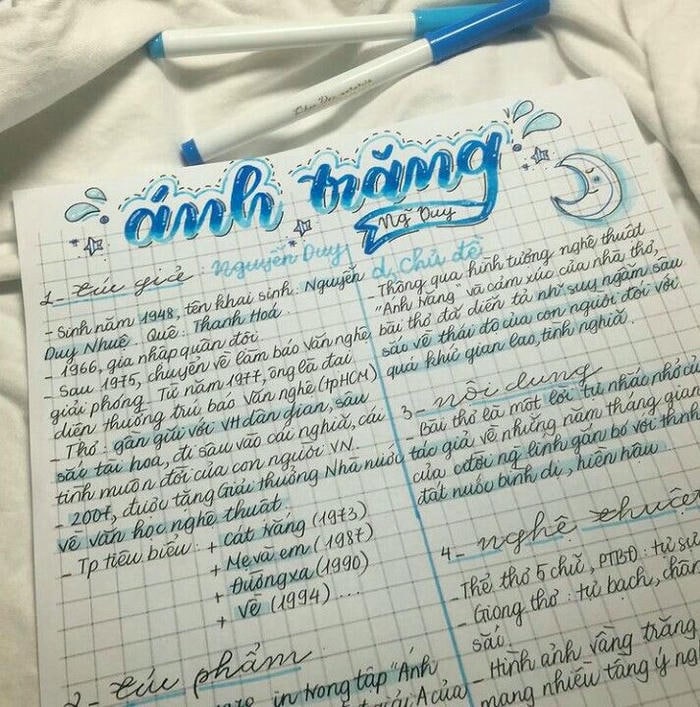 ánh trăng
Ng Duy
1- tác giả : Nguyễn Duy
- Sinh năm 1948, tên khai sinh: Nguyễn
Duy Nhuệ. Quê: Thanh Hoá
- 1966, gia nhập quân đội
- Sau 1975, chuyển về làm báo Văn nghệ
giải phóng. Từ năm 1977, ông là đại
diện thường trú báo Văn nghệ (tpHCM)
- Thơ: gần gũi với VH dân gian, sâu
sắc tài hoa, đi sâu vào cái nghĩa, cái
tình muôn đời của con người VN.
- 2007, được tặng Giải thưởng Nhà nước
về văn học nghệ thuật
- Tp tiêu biểu: + Cát trắng (1973)
+ Mẹ và em (1987)
+ Đường xa (1990)
+ Về (1994) ...
2- tác phẩm
in trong tập "Ánh
A của
d, Chủ đề
- Thông qua hình tượng nghệ thuật
"Ánh trăng" và cảm xúc của nhà thơ,
bài thơ đã diễn tả những suy ngẫm sâu
sắc về thái độ của con người đối với
quá khứ gian lao, tình nghĩa.
3- nội dung
- Bài thơ là một lời tự nhắc nhở của
tác giả về những năm tháng gian
của cđời ng lính gắn bó với thiên
đất nước bình dị, hiền hậu
4- nghệ thuật
- Thể thơ 5 chữ, PTBĐ: tự sự
- Giọng thơ: tự bạch, chân
sắc
- Hình ảnh vầng trăng
mang nhiều tầng ý ng